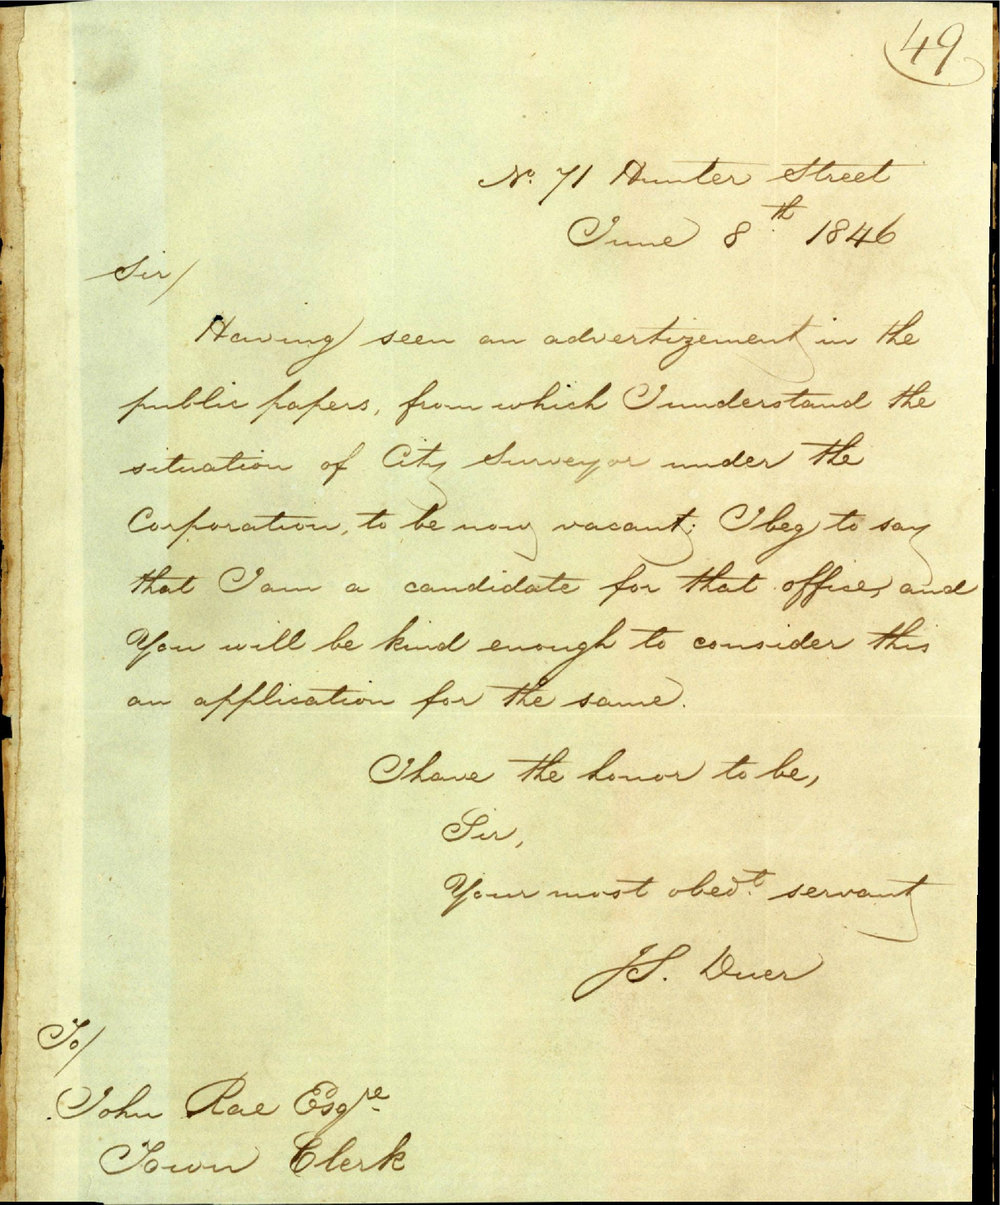 49
No. 71 Hunter Street
June 8th 1846
Sir/
Having seen an advertizement in the
public papers, from which I understand the
situation of City Surveyor under the
Corporation, to be now vacant; I beg to say
that I am a candidate for that office, and
You will be kind enough to consider this
an application for the same.
I have the honor to be,
Sir,
Your most obedt. servant
J S. Duer
To/
John Rae Esqre.
Town Clerk